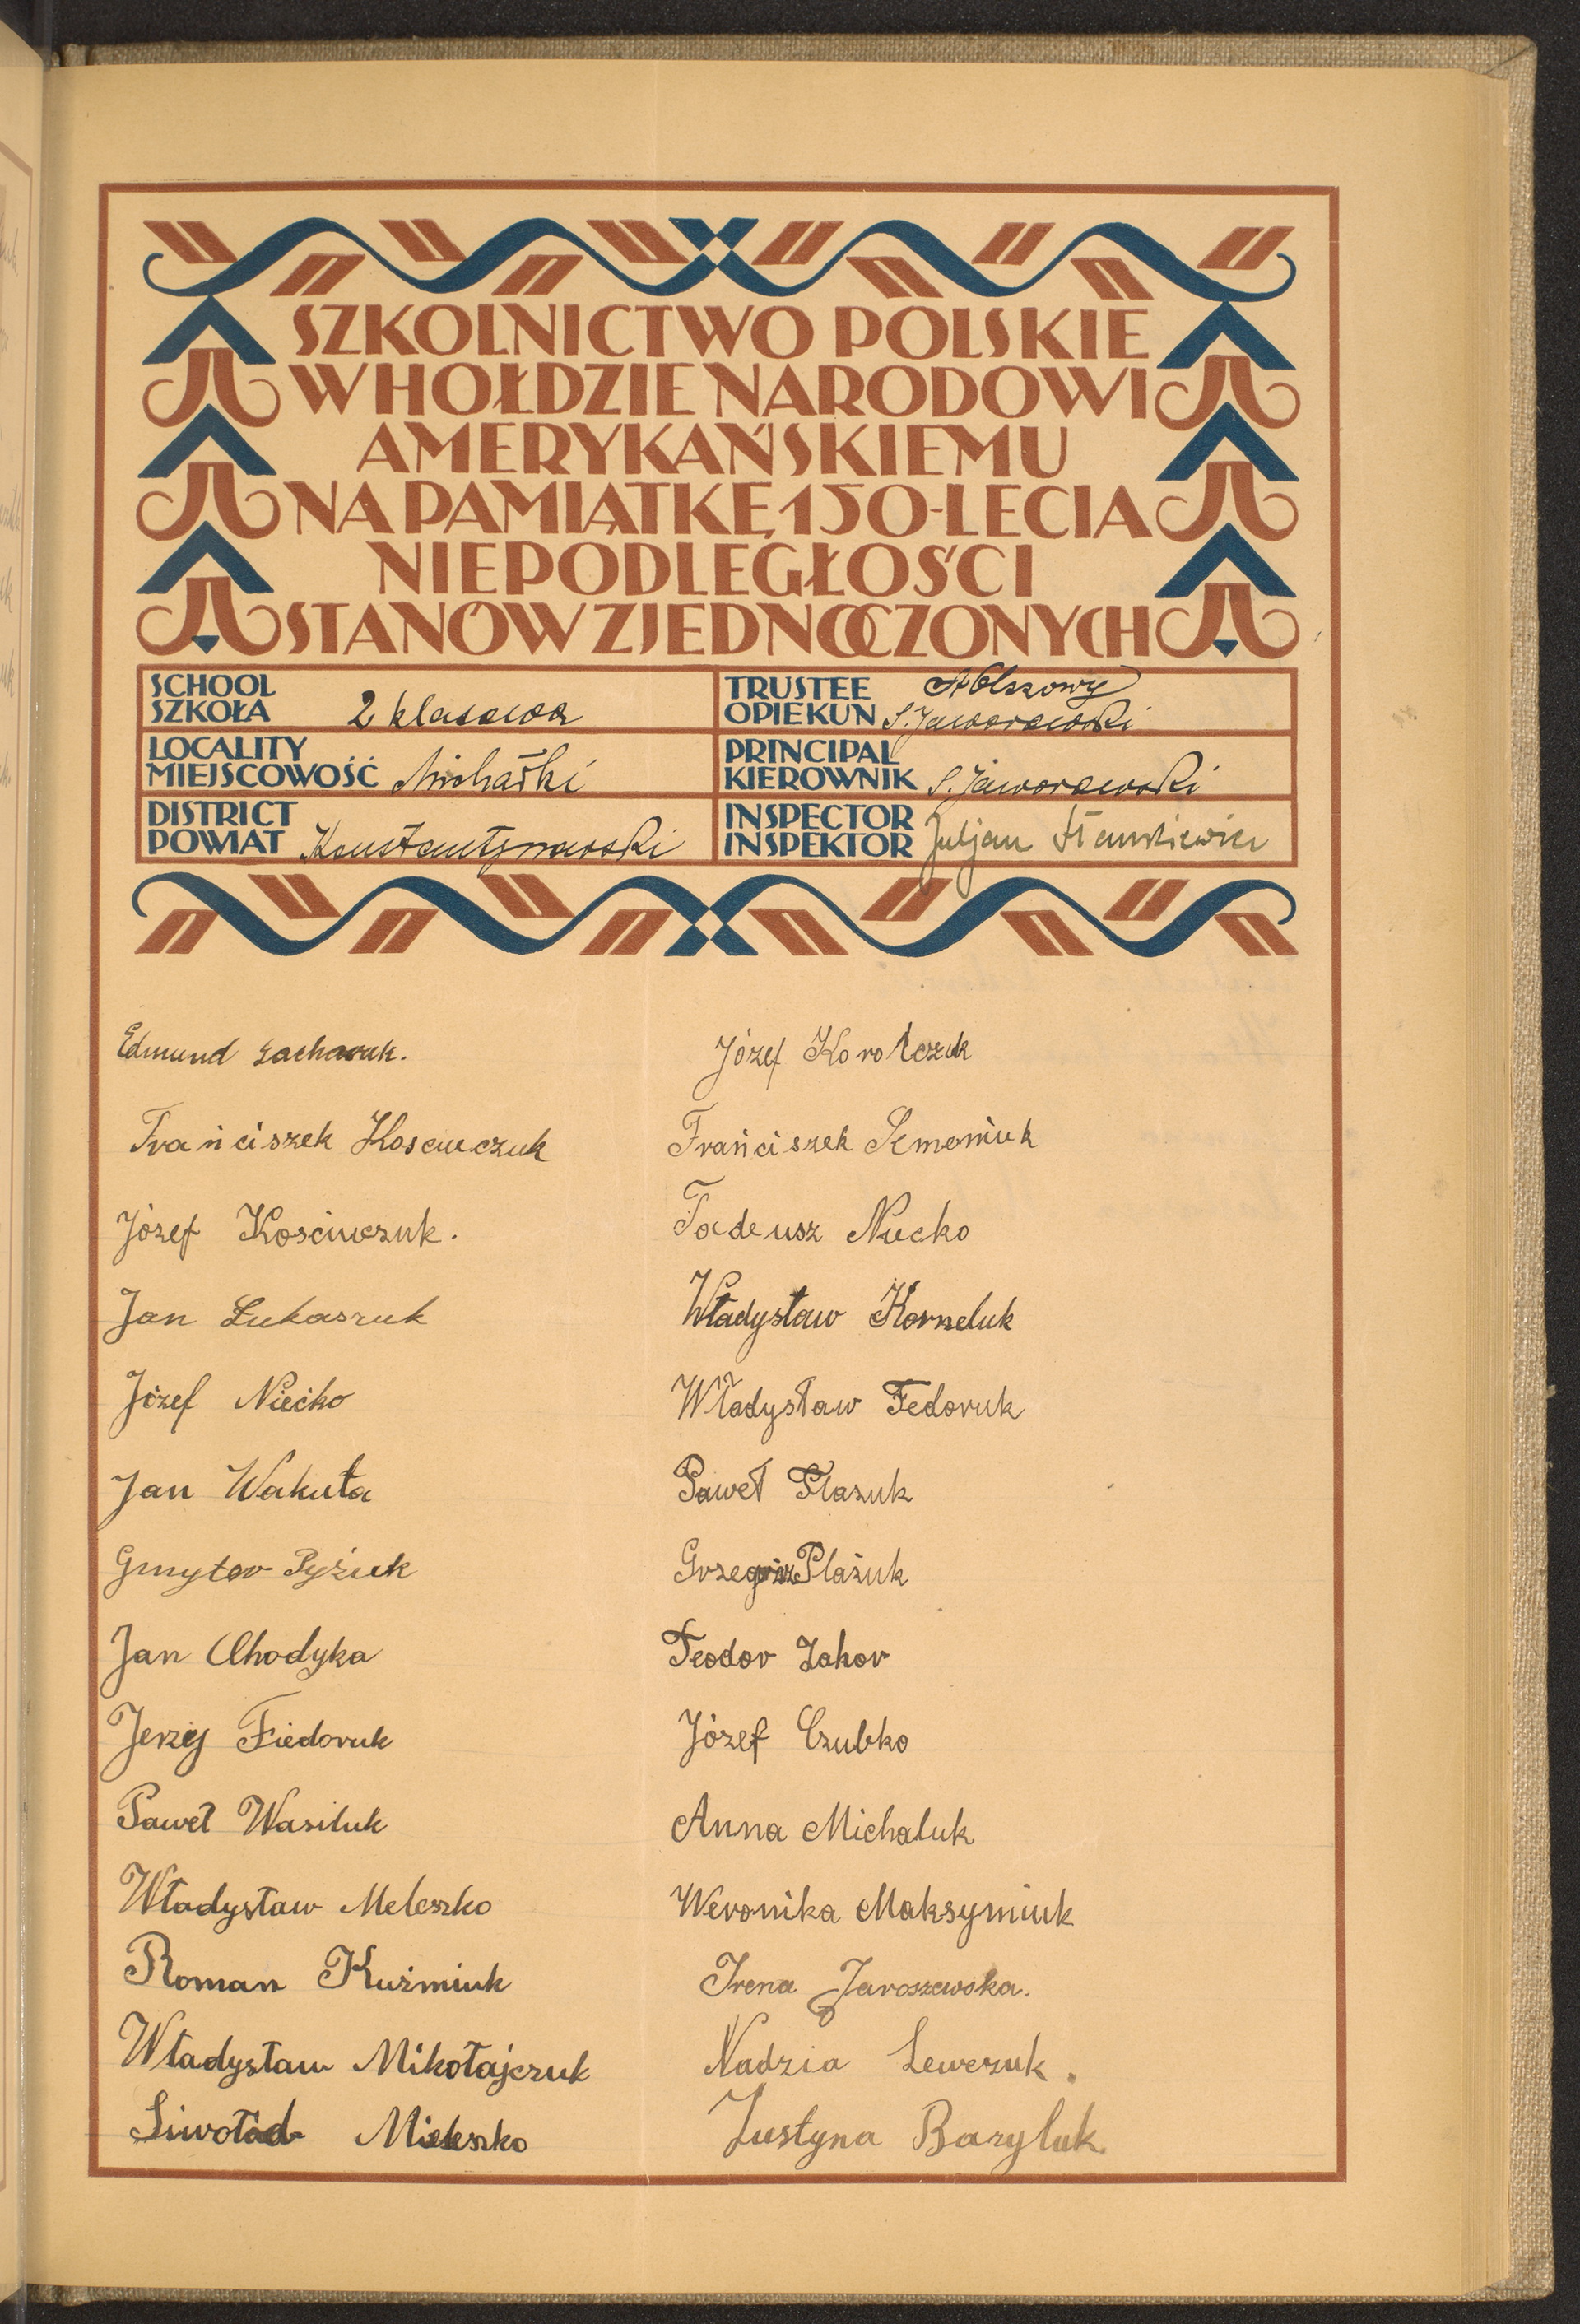 SZKOLNICTWO POLSKIE
W HOŁDZIE NARODOWI
AMERYKAŃSKIEMU
NA PAMIĄTKĘ 150-LECIA
NIEPODLEGŁOŚCI
STANÓW ZJEDNOCZONYCH
SCHOOL
SZKOŁA 2 klasowa
TRUSTEE
OPIEKUN S. Jaworowski
LOCALITY
MIEJSCOWOŚĆ Michałki
PRINCIPAL
KIEROWNIK S. Jaworowski
DISTRICT
POWIAT Konstantynowski
INSPECTOR
INSPEKTOR Juljan Stankiewicz
Edmund Zacharuk.
Frańciszek Kosciuczuk
Józef Kościuczuk.
Jan Łukaszuk
Józef Niećko
Jan Wakuła
Gmyter Pyżuk
Jan Chodyka
Jerzej Fiedoruk
Paweł Wasiluk
Władysław Meleszko
Roman Kuźmiuk
Władysław Mikołajczuk
Mieleszko
Józef Korotczuk
Frańciszek Semeniuk
Tadeusz Niecko
Władysław Korneluk
Władysław Fedoruk
Paweł Plazuk
Grzegorz Plażuk
Teodor Zahor
Józef Czubko
Anna Michaluk
Weronika Maksymiuk
Irena Jaroszewska.
Nadzia Lewczuk.
Justyna Baryluk.